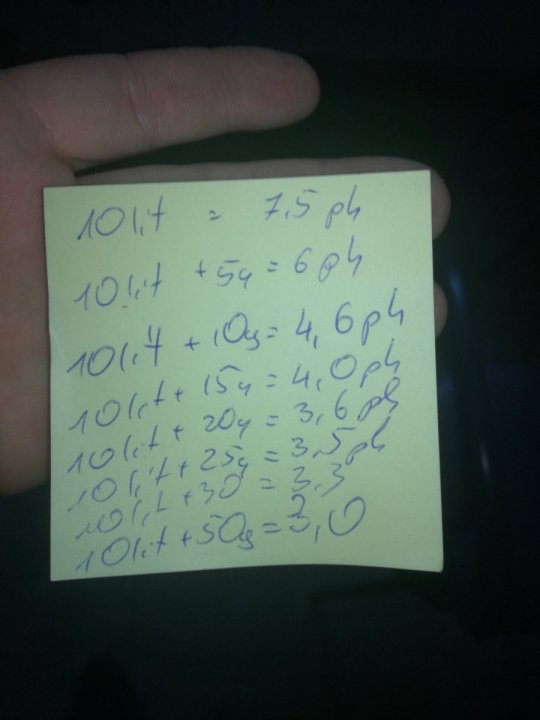 10 lit = 7,5 ph
10 lit + 5g = 6 ph
10 lit + 10g = 4,6 ph
10 lit + 15g = 4,0 ph
10 lit + 20g = 3,6 ph
10 lit + 25g = 3,5 ph
10 lit + 30 = 3,3
10 lit + 50g = 3,0